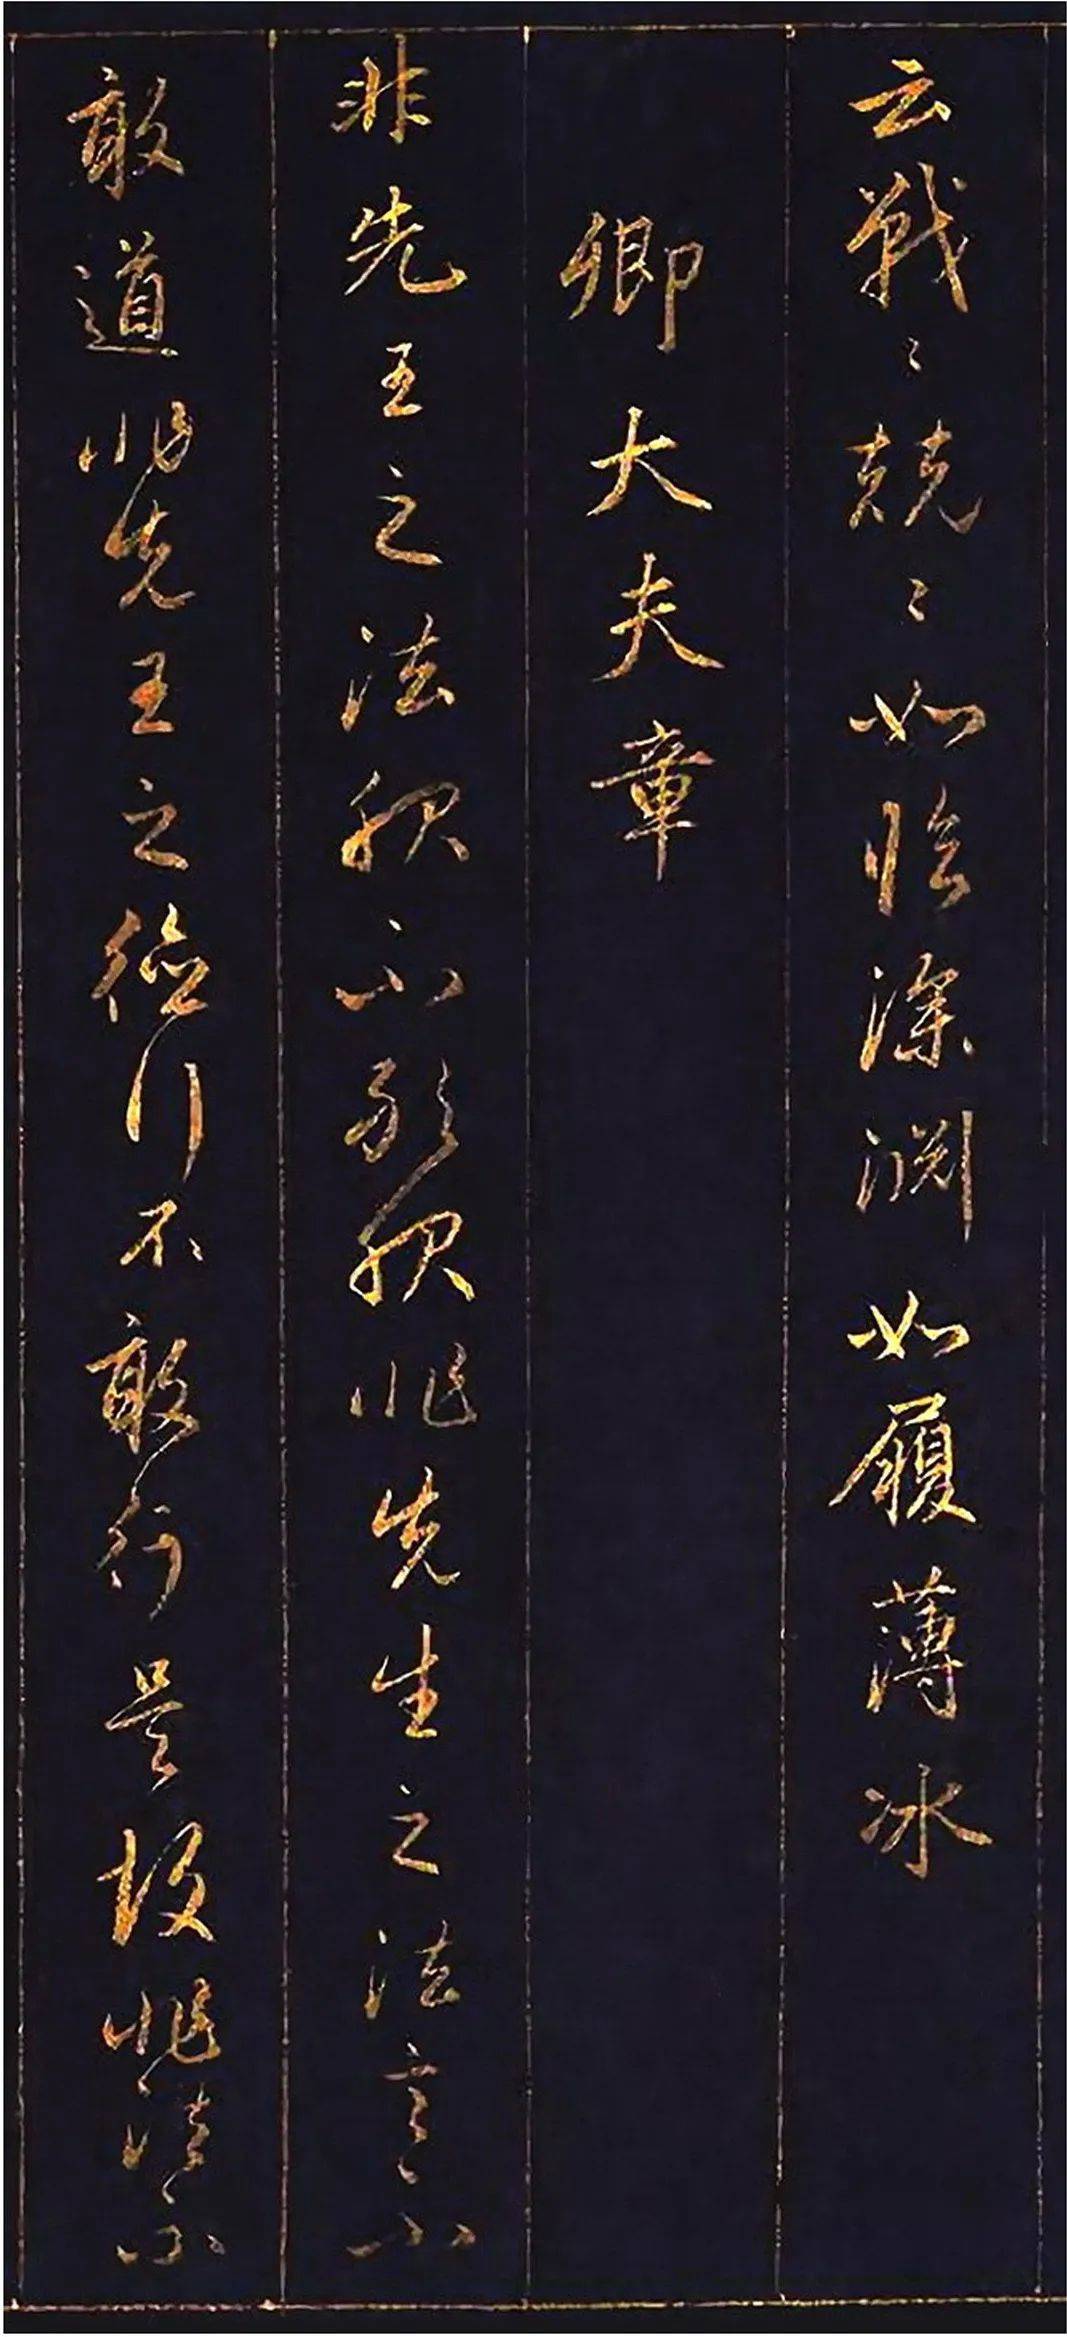 云戰〻兢〻如臨深淵如履薄冰
卿大夫章
非先王之法服不敢服非先生之法言不
敢道非先王之德行不敢行是故非法不